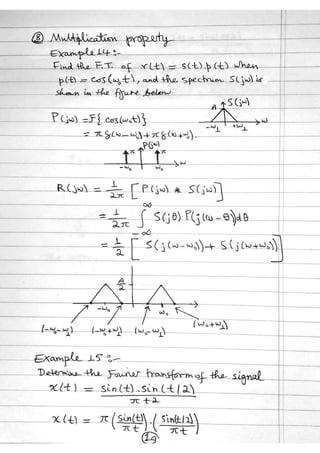 ⑧ Multiplication property
Example 14 :-
Find the F.T. of r(t) = s(t).p(t) when
p(t) = cos(ω₀t), and the spectrum S(jω) is
shown in the figure below
A S(jω)
-ω₁ +ω₁ ω
P(jω) = F{cos(ω₀t)}
= πδ(ω-ω₀)+πδ(ω+ω₀).
P(jω)
π π
-ω₀ ω₀ ω
R(jω) = 1/2π [P(jω) * S(jω)]
= 1/2π ∫_{-∞}^{∞} S(jθ) P(j(ω-θ))dθ
= 1/2 [S(j(ω-ω₀))+ S(j(ω+ω₀))]
A/2
-ω₀ ω₀
(-ω₀-ω₁) (-ω₀+ω₁) (ω₀-ω₁) (ω₀+ω₁)
Example 15 :-
Determine the Fourier transform of the signal
x(t) = sin(t).sin(t/2) / πt2
x(t) = π (sin(t)/πt).(sin(t/2)/πt)
(19)